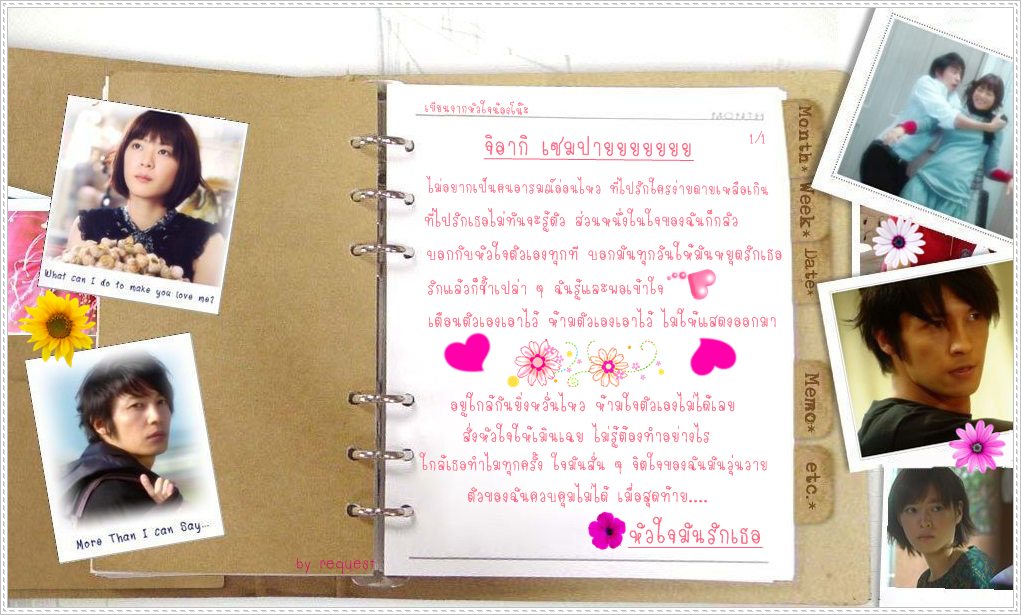 เขียนจากหัวใจน้องโน๊ะ
MONTH
1/1
จิอากิ เซมปายยยยยยย
ไม่อยากเป็นคนอารมณ์อ่อนไหว ที่ไปรักใครง่ายดายเหลือเกิน
ที่ไปรักเธอไม่ทันจะรู้ตัว ส่วนหนึ่งในใจของฉันก็กลัว
บอกกับหัวใจตัวเองทุกที บอกมันทุกวันให้มันหยุดรักเธอ
รักแล้วก็ช้ำเปล่า ๆ ฉันรู้และพอเข้าใจ
เตือนตัวเองเอาไว้ ห้ามตัวเองเอาไว้ ไม่ให้แสดงออกมา
อยู่ใกล้กันยิ่งหวั่นไหว ห้ามใจตัวเองไม่ได้เลย
สั่งหัวใจให้เมินเฉย ไม่รู้ต้องทำอย่างไร
ใกล้เธอทำไมทุกครั้ง ใจมันสั่น ๆ จิตใจของฉันมันวุ่นวาย
ตัวของฉันควบคุมไม่ได้ เมื่อสุดท้าย....
หัวใจมันรักเธอ
What can I do to make you love me?
More Than I can Say...
by request
Month*
Week*
Date*
Memo*
etc.*